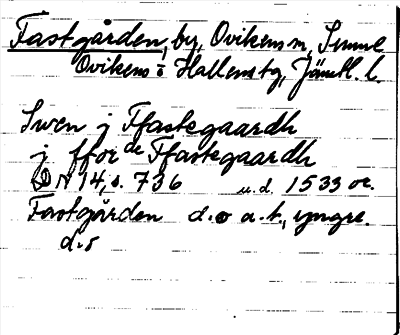 Fastgården, by, Ovikens sn,
Ovikens o Hallens tg, Jämtl. l.
Swen j Ffastegaardh
j ffor de Ffastegaardh
N 14, s. 736 u.d. 1533 or.
Fastgården d.o a.t., yngre.
d:s